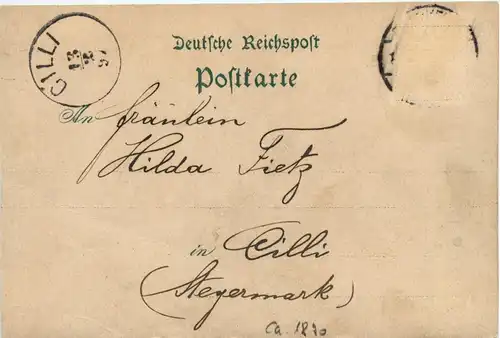 CILLI
13
2
97
Deutsche Reichspost
Postkarte
An fräulein
Hilda Fietz
in Cilli
(Stegermark)
ca. 1890